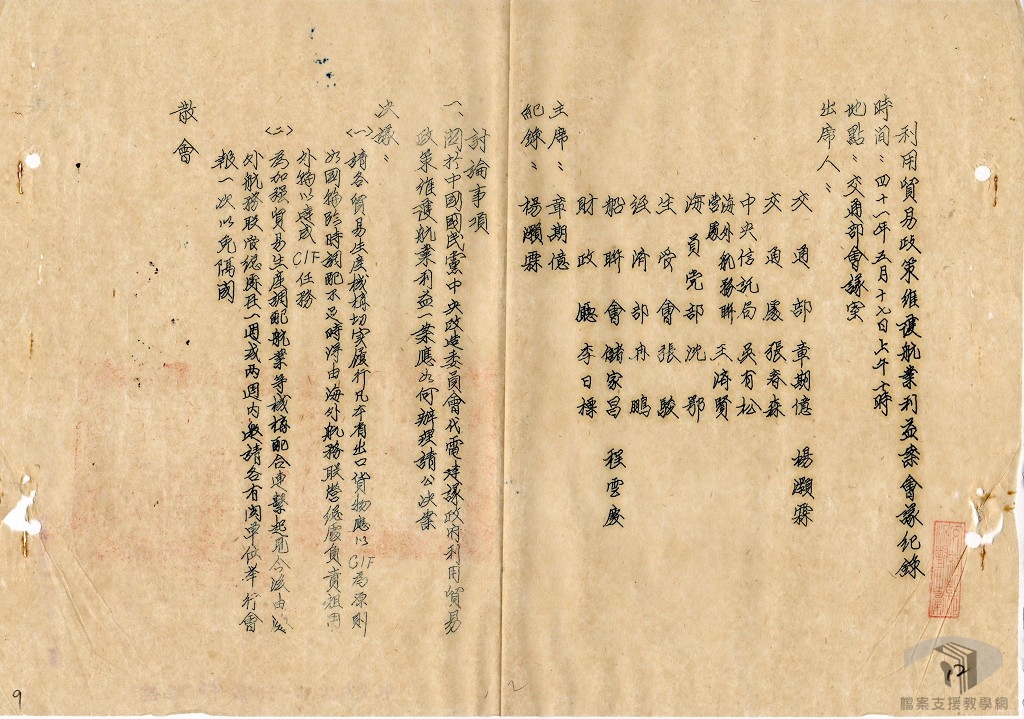 利用貿易政策維護航業利益案會議紀錄
時間：四十一年五月十七日上午十時
地點：交通部會議室
出席人：
交通部 章期億 楊灝霖
交通處 張春森
中央信託局 吳有松
海外航務聯營處 王濟賢
海員党部 沈鄂
生管會 張駿
經濟部 冉鵬
船聯會 儲家昌 程雲慶
財政廳 李日標
主席：章期億
紀錄：楊灝霖
討論事項
一、關於中國國民黨中央改造委員會代電建議政府利用貿易
政策維護航業利益一業應如何辦理請公決業
決議：
(一)請各貿易生產機構切實履行凡本省出口貨物應以C/F為原則
如國輪臨時調配不足時得由海外航務聯營總處負責租用
外輪以達成C/F任務
(二)為加强貿易生產調配航業等機構配合連繫起見今後由海
外航務聯營總處於一週或兩週內邀請各有関單位舉行會
報一次以免隔閡
散會
9
2
12
檔案支援教學網